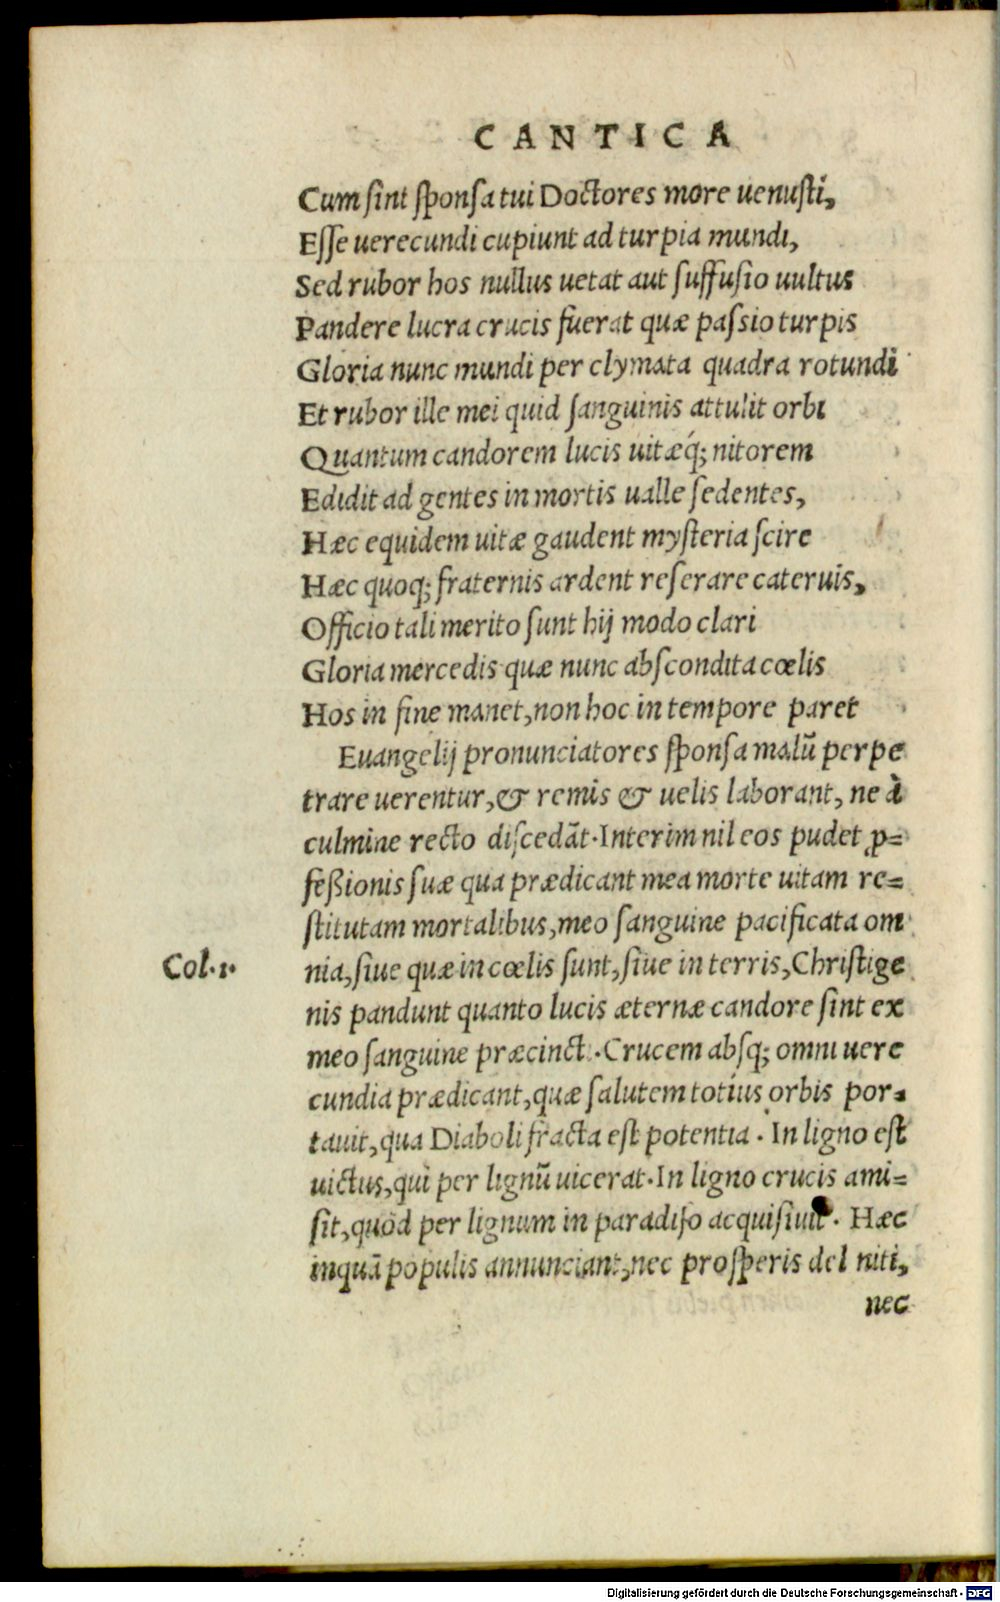 CANTICA
Cum sint sponsa tui Doctores more uenusti,
Esse uerecundi cupiunt ad turpia mundi,
Sed rubor hos nullus uetat aut suffusio uultus
Pandere lucra crucis fuerat quæ passio turpis
Gloria nunc mundi per clymata quadra rotundi
Et rubor ille mei quid sanguinis attulit orbi
Quantum candorem lucis uitæq́; nitorem
Edidit ad gentes in mortis ualle sedentes,
Hæc equidem uitæ gaudent mysteria scire
Hæc quoq; fraternis ardent reserare cateruis,
Officio tali merito sunt hij modo clari
Gloria mercedis quæ nunc abscondita cœlis
Hos in fine manet, non hoc in tempore paret
Euangelij pronunciatores sponsa malū perpe
trare uerentur, & remis & uelis laborant, ne à
culmine recto discedāt. Interim nil eos pudet ꝓ=
feßionis suæ qua prædicant mea morte uitam re=
stitutam mortalibus, meo sanguine pacificata om
Col. 1.
nia, siue quæ in cœlis sunt, siue in terris, Christige
nis pandunt quanto lucis æternæ candore sint ex
meo sanguine præcincti. Crucem absq; omni uere
cundia prædicant, quæ salutem totius orbis por=
tauit, qua Diaboli fracta est potentia. In ligno est
uictus, qui per lignū uicerat. In ligno crucis ami=
sit, quod per lignum in paradiso acquisiuit. Hæc
inquā populis annunciant, nec prosperis deliniti,
nec
Digitalisierung gefördert durch die Deutsche Forschungsgemeinschaft - DFG